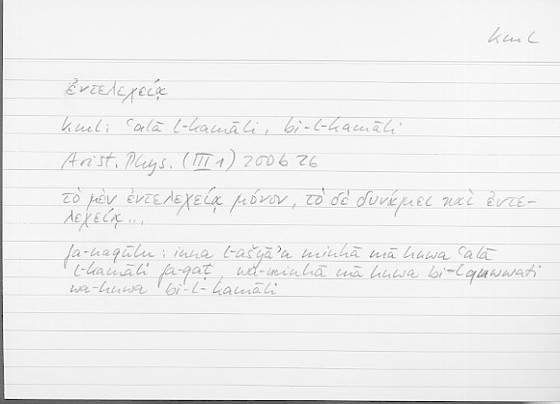 kml
ἐντελεχείᾳ
kml: ʿalā l-kamāli, bi-l-kamāli
Arist. Phys. (III 1) 200b26
τὸ μὲν ἐντελεχείᾳ μόνον, τὸ δὲ δυνάμει καὶ ἐντε-
λεχείᾳ...
fa-naqūlu: inna l-ašyāʾa minhā mā huwa ʿalā
l-kamāli faqaṭ, wa-minhā mā huwa bi-l-quwwati
wa-huwa bi-l-kamāli